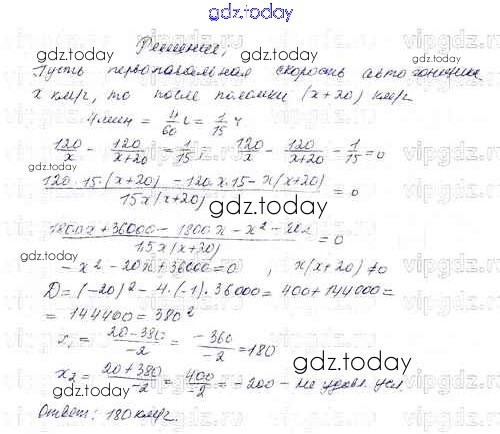 gdz.today
Решение,
Пусть первоначальная скорость автогонщика
x км/ч, то после поломки (x+20) км/ч
4 мин = 4/60 ч = 1/15 ч
120/x - 120/(x+20) = 1/15, 120/x - 120/(x+20) - 1/15 = 0
(120·15·(x+20) - 120·x·15 - x(x+20))/(15x(x+20)) = 0
(1800x + 36000 - 1800x - x² - 20x)/(15x(x+20)) = 0
- x² - 20x + 36000 = 0, x(x+20) ≠ 0
D = (-20)² - 4·(-1)·36000 = 400 + 144000 =
= 144400 = 380²
x₁ = (20-380)/-2 = -360/-2 = 180
x₂ = (20+380)/-2 = 400/-2 = -200 - не удовл. усл
Ответ: 180 км/ч.